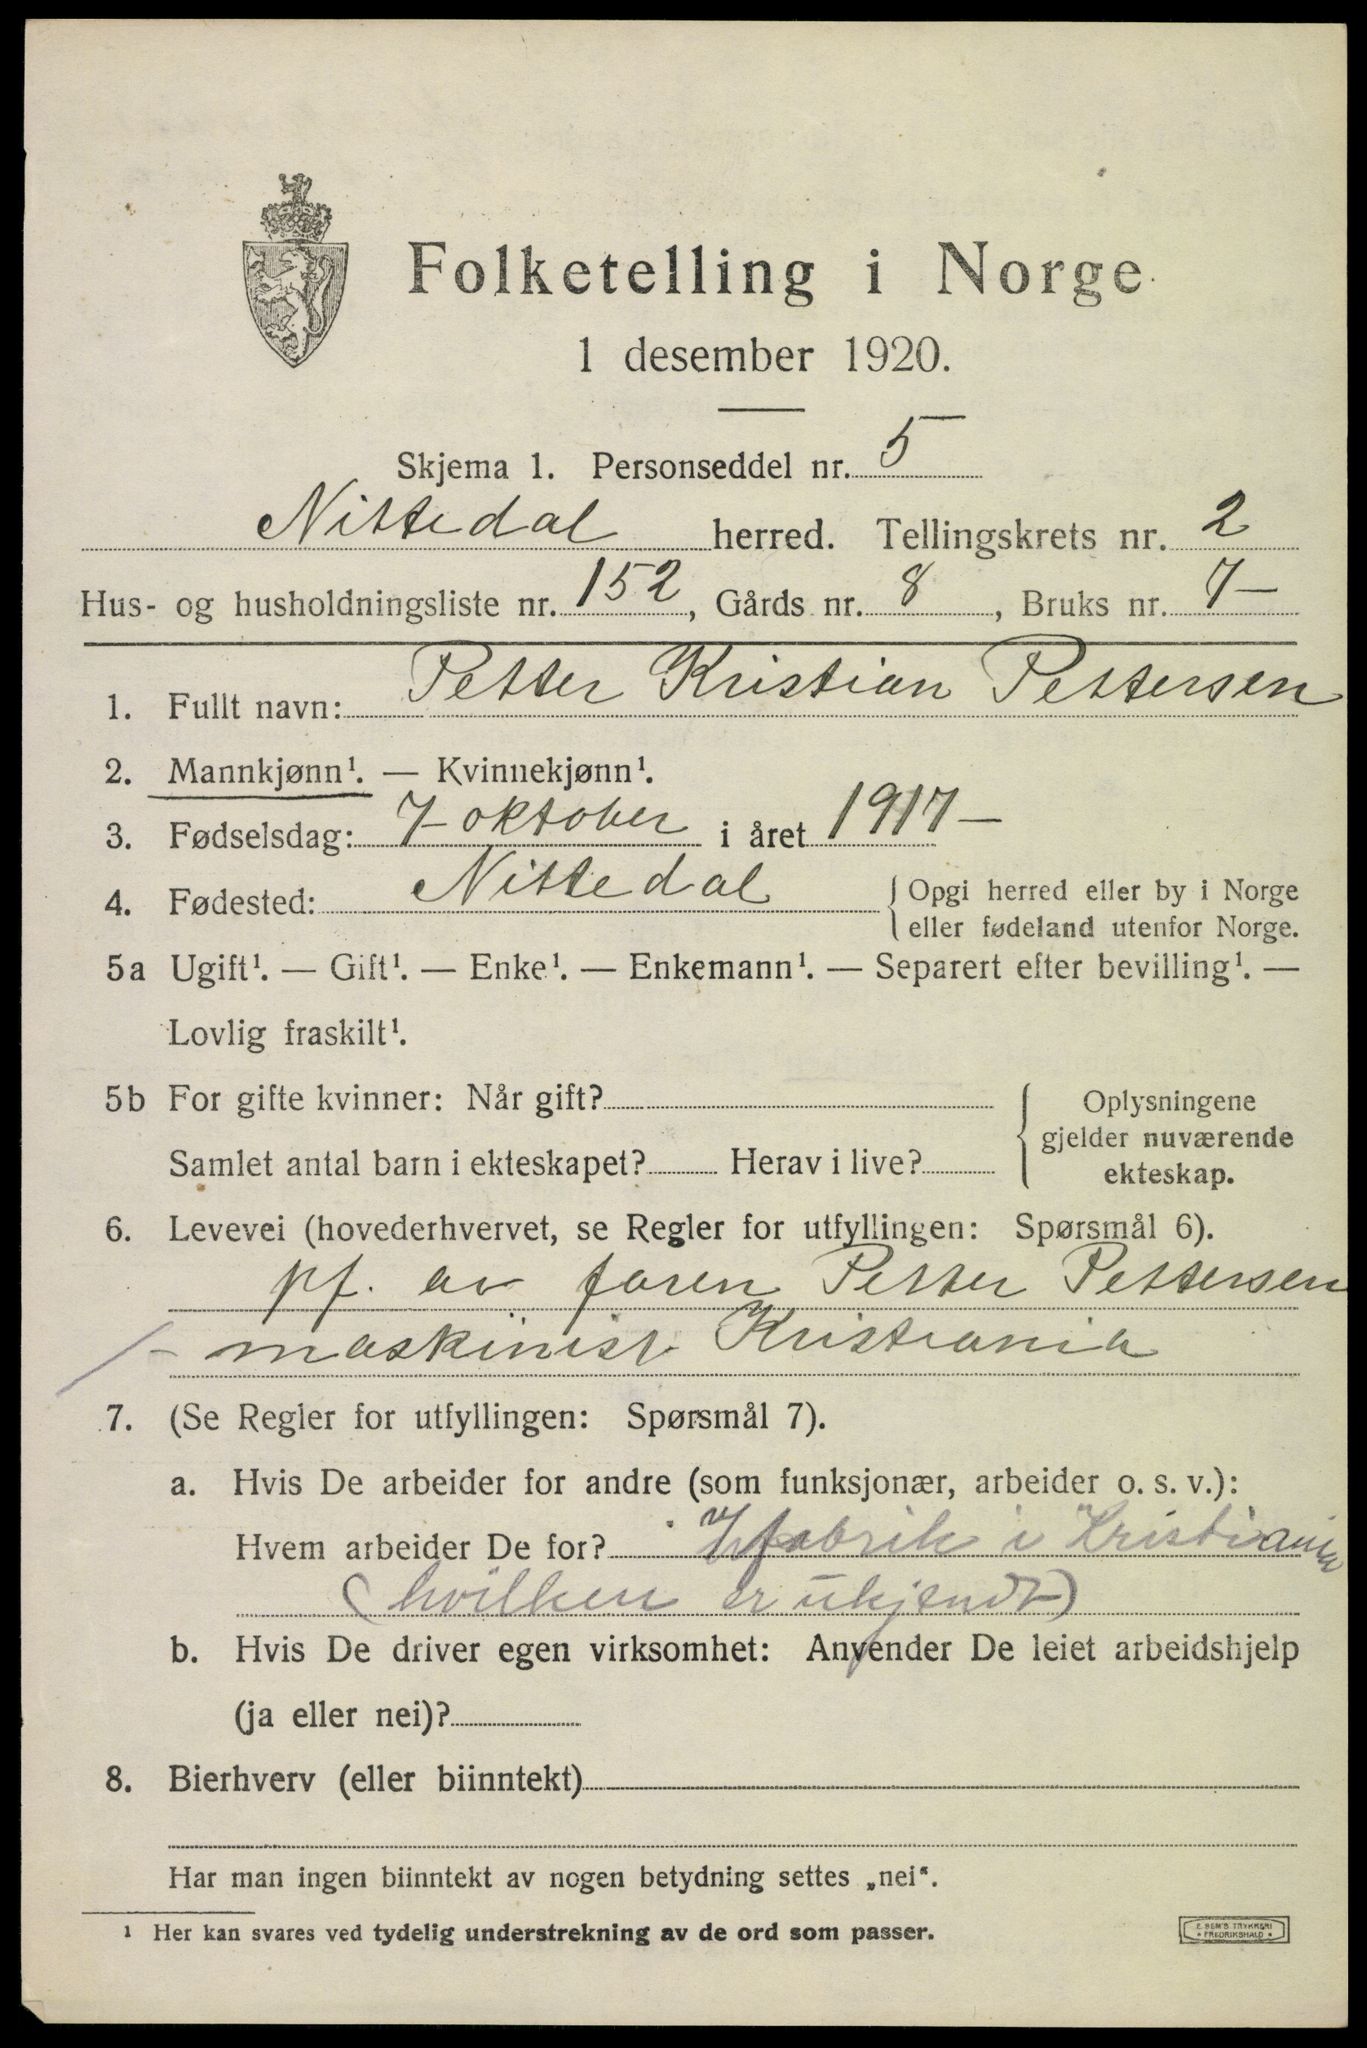 Folketelling i Norge
1 desember 1920.
Skjema 1. Personseddel nr. 5
Nittedal herred. Tellingskrets nr. 2
Hus- og husholdningsliste nr. 152, Gårds nr. 8, Bruks nr. 7-
1. Fullt navn: Petter Kristian Pettersen
2. Mannkjønn¹. — Kvinnekjønn¹.
3. Fødselsdag: 7-oktober i året 1917-
4. Fødested: Nittedal { Opgi herred eller by i Norge
eller fødeland utenfor Norge.
5a Ugift¹. — Gift¹. — Enke¹. — Enkemann¹. — Separert efter bevilling¹. —
Lovlig fraskilt¹.
5b For gifte kvinner: Når gift?
Samlet antal barn i ekteskapet? Herav i live?
{ Oplysningene
gjelder nuværende
ekteskap.
6. Levevei (hovederhvervet, se Regler for utfyllingen: Spørsmål 6).
pf. av faren Petter Pettersen
/- maskinist. Kristiania
7. (Se Regler for utfyllingen: Spørsmål 7).
a. Hvis De arbeider for andre (som funksjonær, arbeider o. s. v.):
Hvem arbeider De for? fabrik i Kristiania
(hvilken er ukjendt)
b. Hvis De driver egen virksomhet: Anvender De leiet arbeidshjelp
(ja eller nei)?
8. Bierhverv (eller biinntekt)
Har man ingen biinntekt av nogen betydning settes „nei“.
¹ Her kan svares ved tydelig understrekning av de ord som passer.
E. SEM'S TRYKKERI
* FREDRIKSHALD *